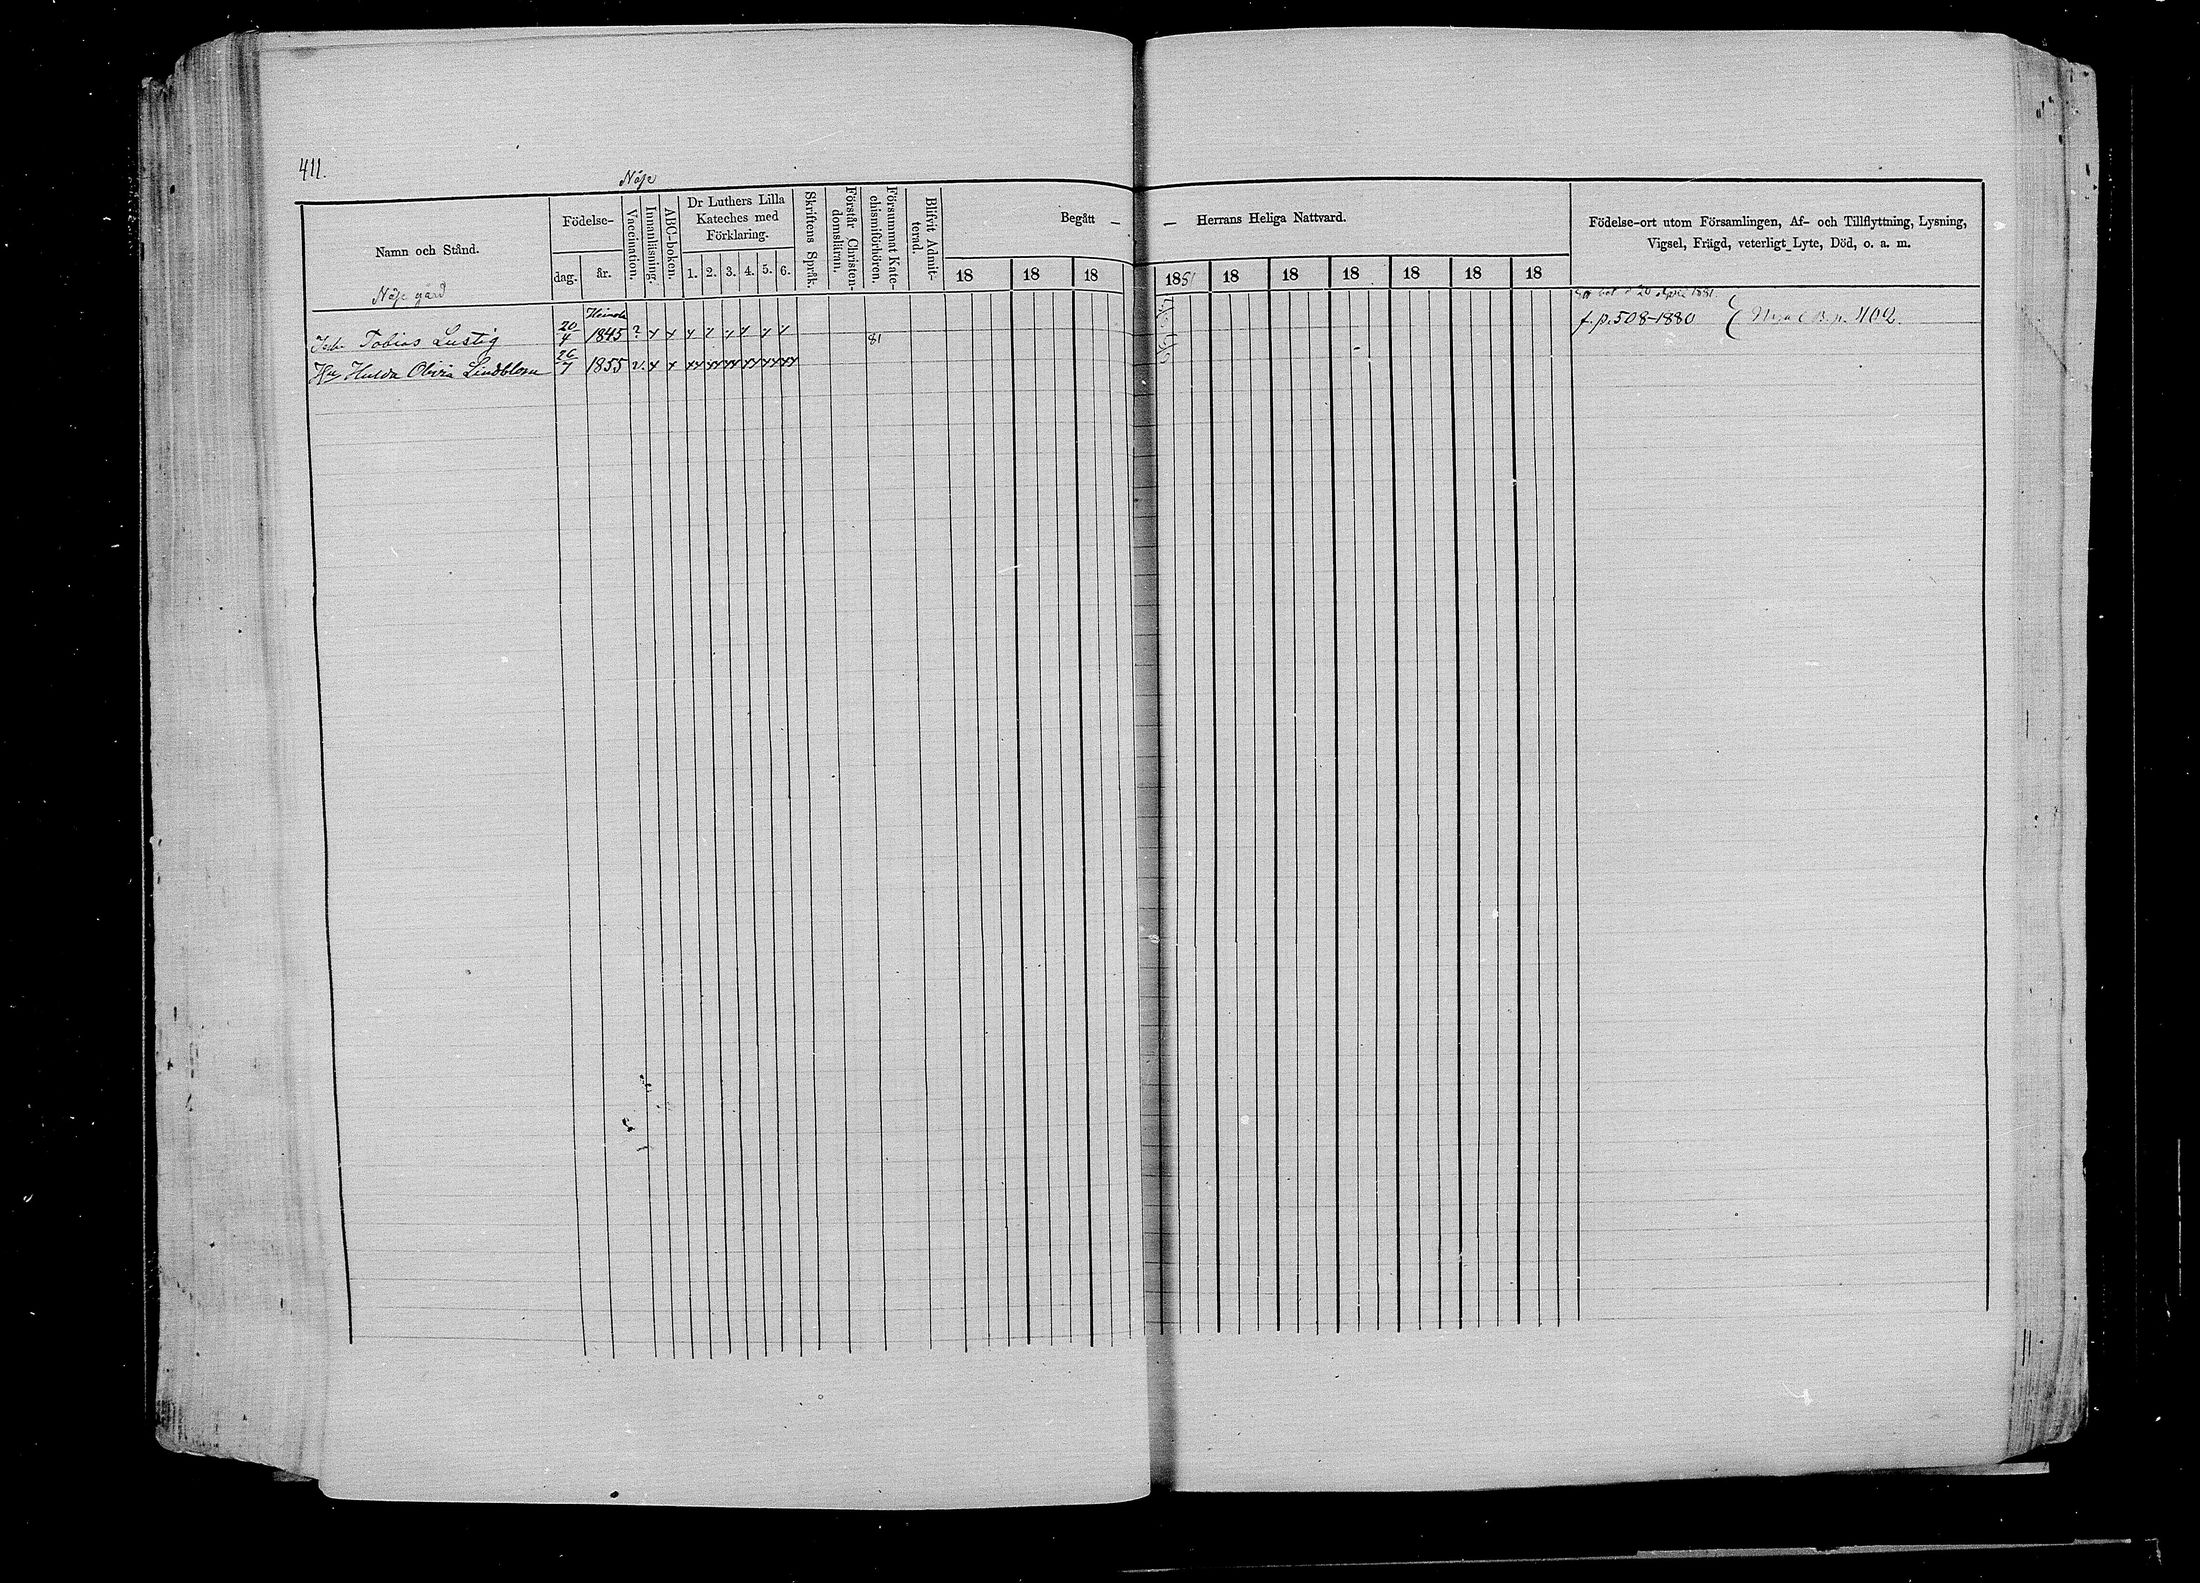 411.
Näse
Namn och Stånd.
Födelse-
dag.
år.
Vaccination.
Innanläsning.
ABC-boken.
Dr Luthers Lilla
Kateches med
Förklaring.
1. 2. 3. 4. 5. 6.
Skriftens Språk.
Förstår Christen-
domsläran.
Försummat Kate-
chismiförhören.
Blifvit Admit-
terad.
Begått —
— Herrans Heliga Nattvard.
18 18 18 1881 18 18 18 18 18 18
Födelse-ort utom Församlingen, Af- och Tillflyttning, Lysning,
Vigsel, Frägd, veterligt Lyte, Död, o. a. m.
Näse gård
Tobias Lustig 20/4 1845 ? x x x x x x x x 81 f. p. 508-1880 402
Hu Hulda Olivia Lindblom 26/7 1855 v. x x xx xx xx xx xx xx